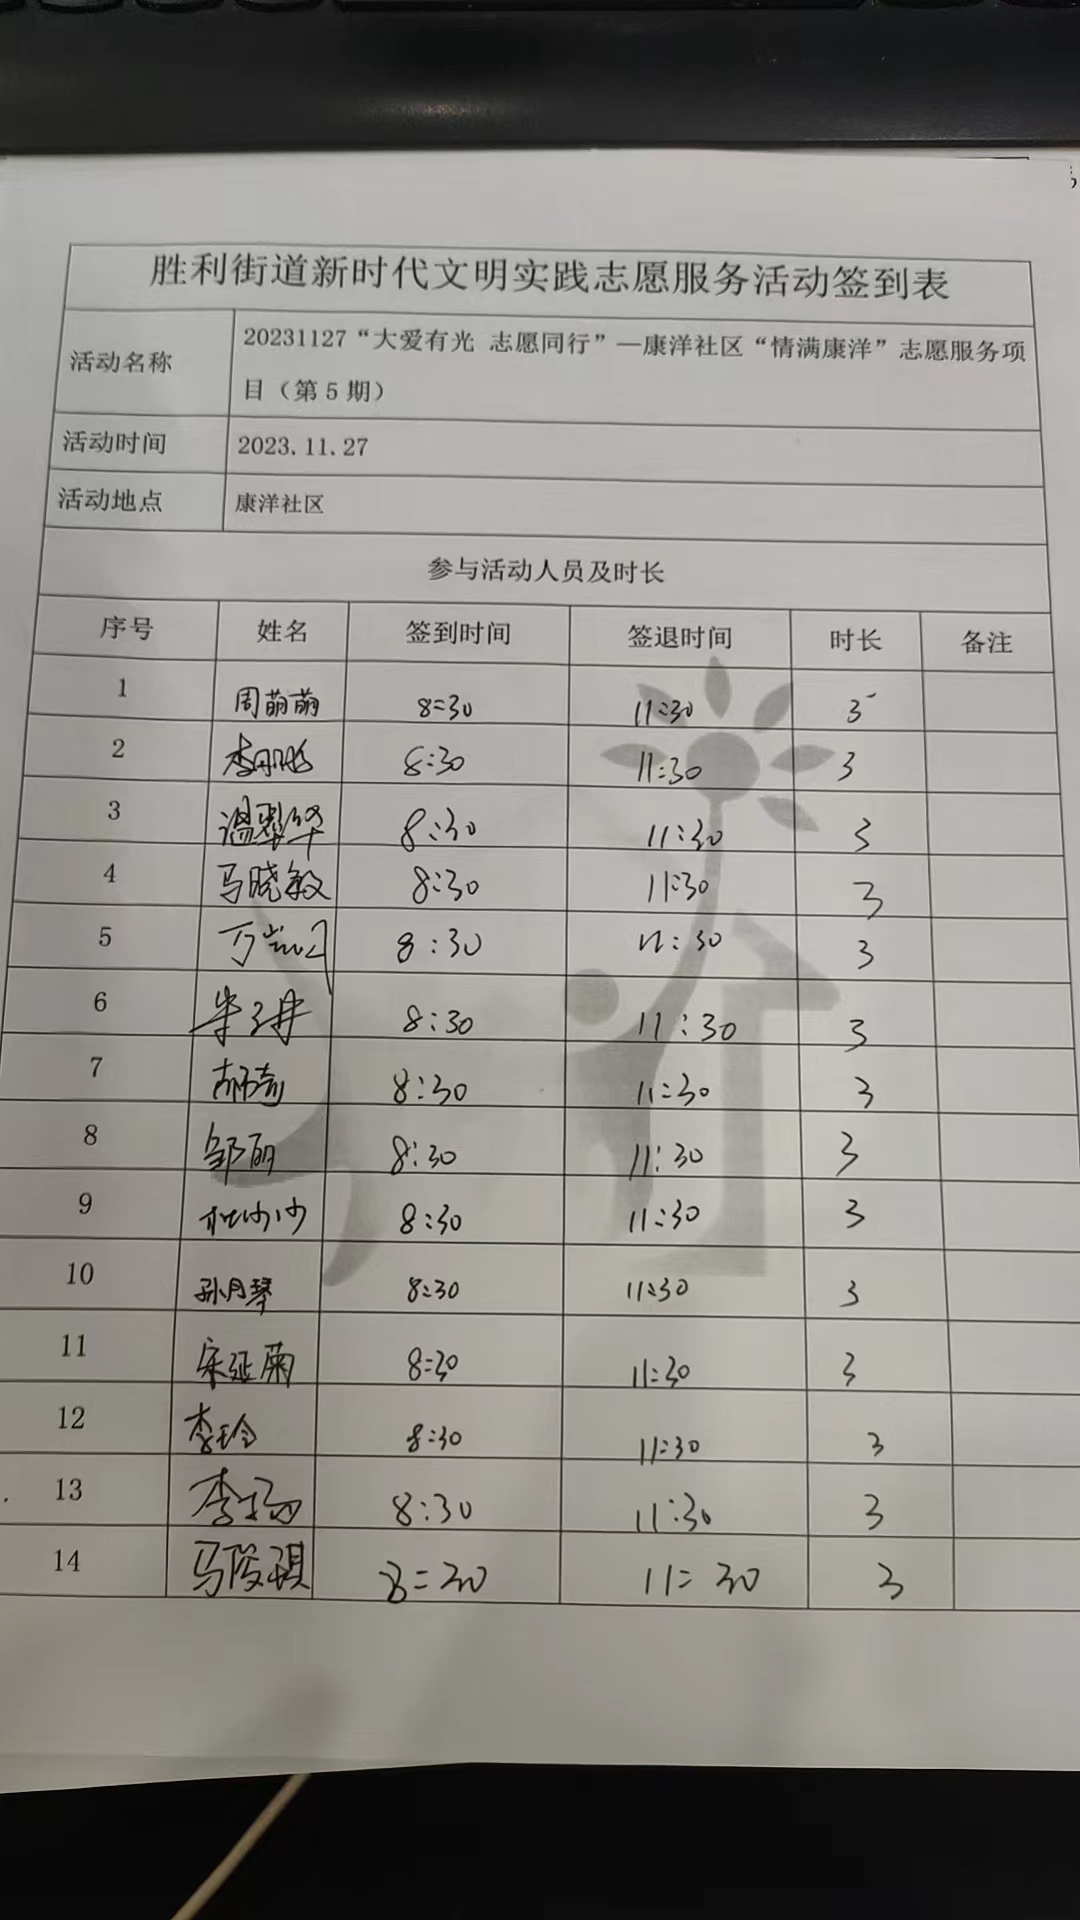 胜利街道新时代文明实践志愿服务活动签到表
活动名称 20231127“大爱有光 志愿同行”—康洋社区“情满康洋”志愿服务项
目（第 5 期）
活动时间 2023.11.27
活动地点 康洋社区
参与活动人员及时长
序号 姓名 签到时间 签退时间 时长 备注
1 周萌萌 8:30 11:30 3
2 8:30 11:30 3
3 8:30 11:30 3
4 马晓敏 8:30 11:30 3
5 8:30 11:30 3
6 8:30 11:30 3
7 8:30 11:30 3
8 邹丽 8:30 11:30 3
9 杜沙沙 8:30 11:30 3
10 孙月琴 8:30 11:30 3
11 宋延菊 8:30 11:30 3
12 李玲 8:30 11:30 3
13 李杨 8:30 11:30 3
14 马陵琪 8:30 11:30 3